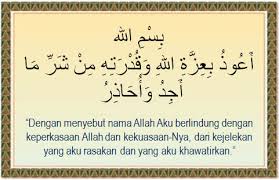 بِسْمِ اللهِ
أَعُوذُ بِعِزَّةِ اللهِ وَقُدْرَتِهِ مِنْ شَرِّ مَا
أَجِدُ وَأُحَاذِرُ
"Dengan menyebut nama Allah Aku berlindung dengan
keperkasaan Allah dan kekuasaan-Nya, dari kejelekan
yang aku rasakan dan yang aku khawatirkan."